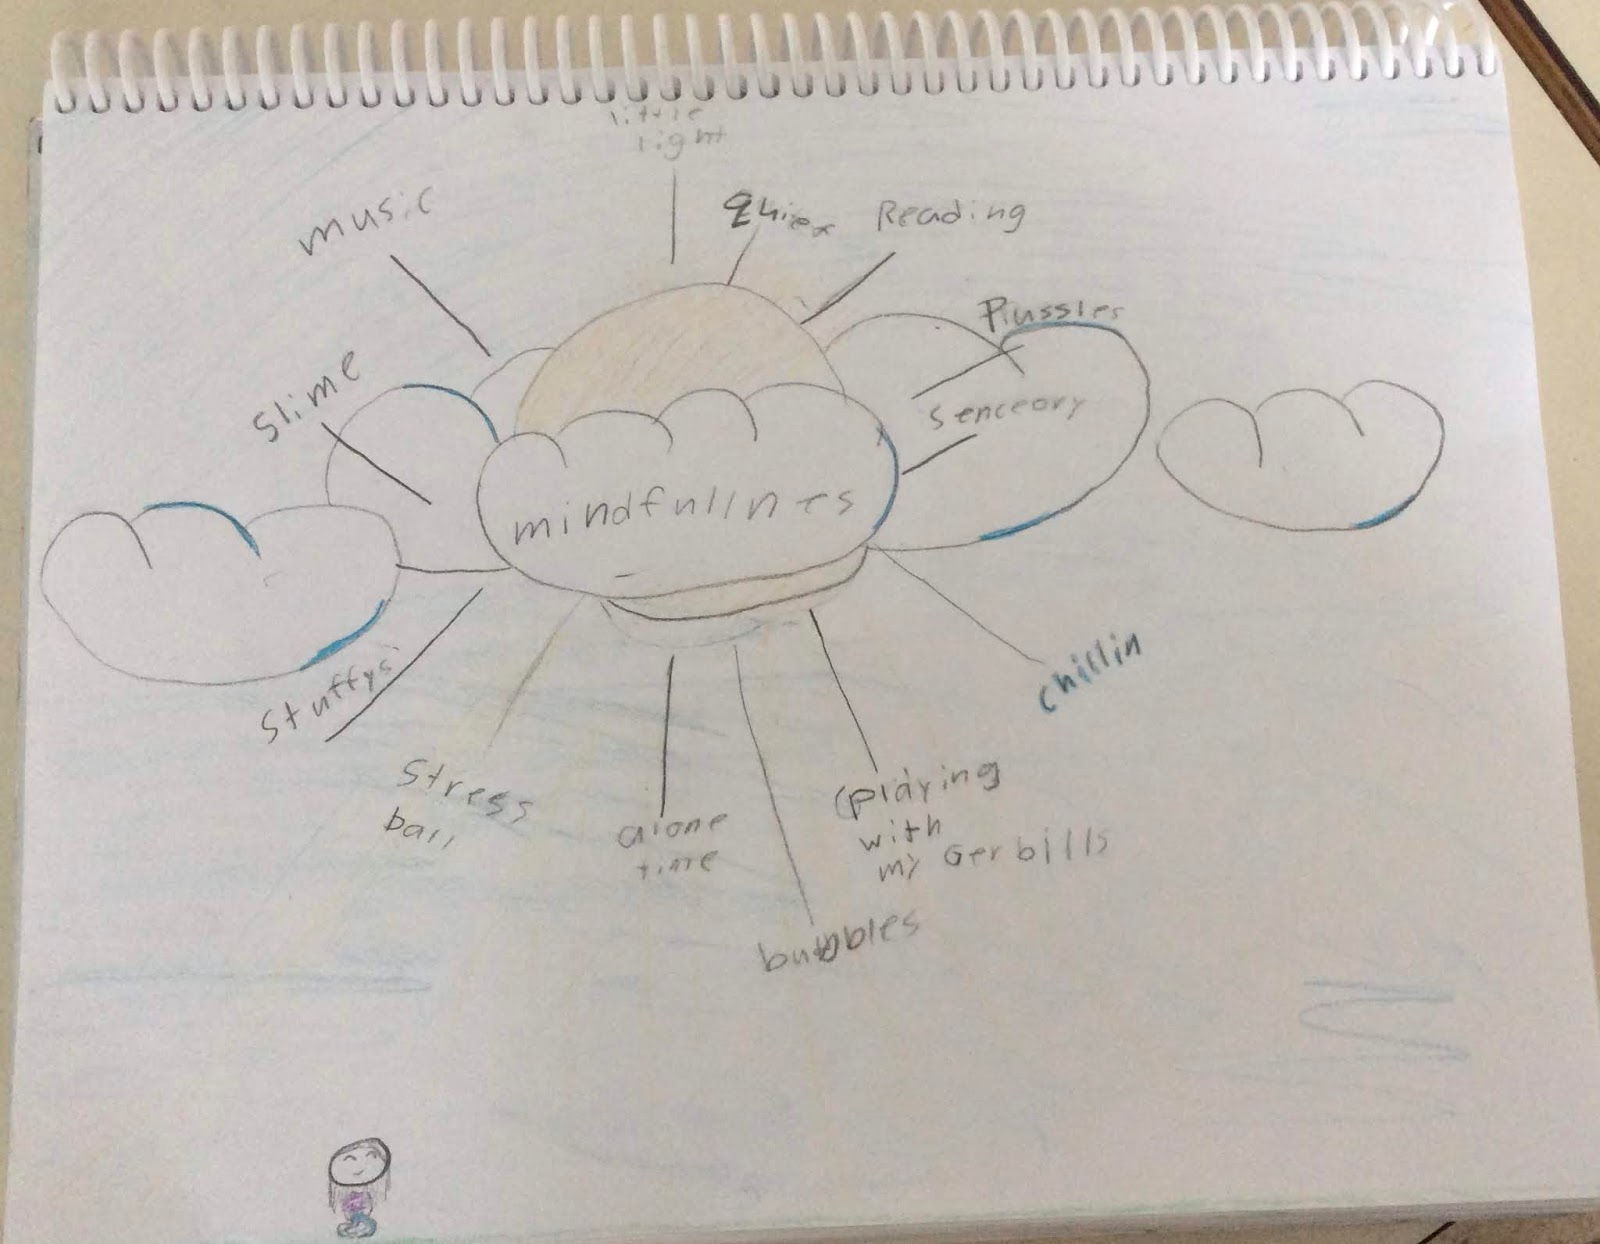 little
light
music
Qhiet Reading
Piussles
slime
senceory
mindfullnes
stuffys
chillin
stress
ball
alone
time
playing
with
my Gerbills
bubbles